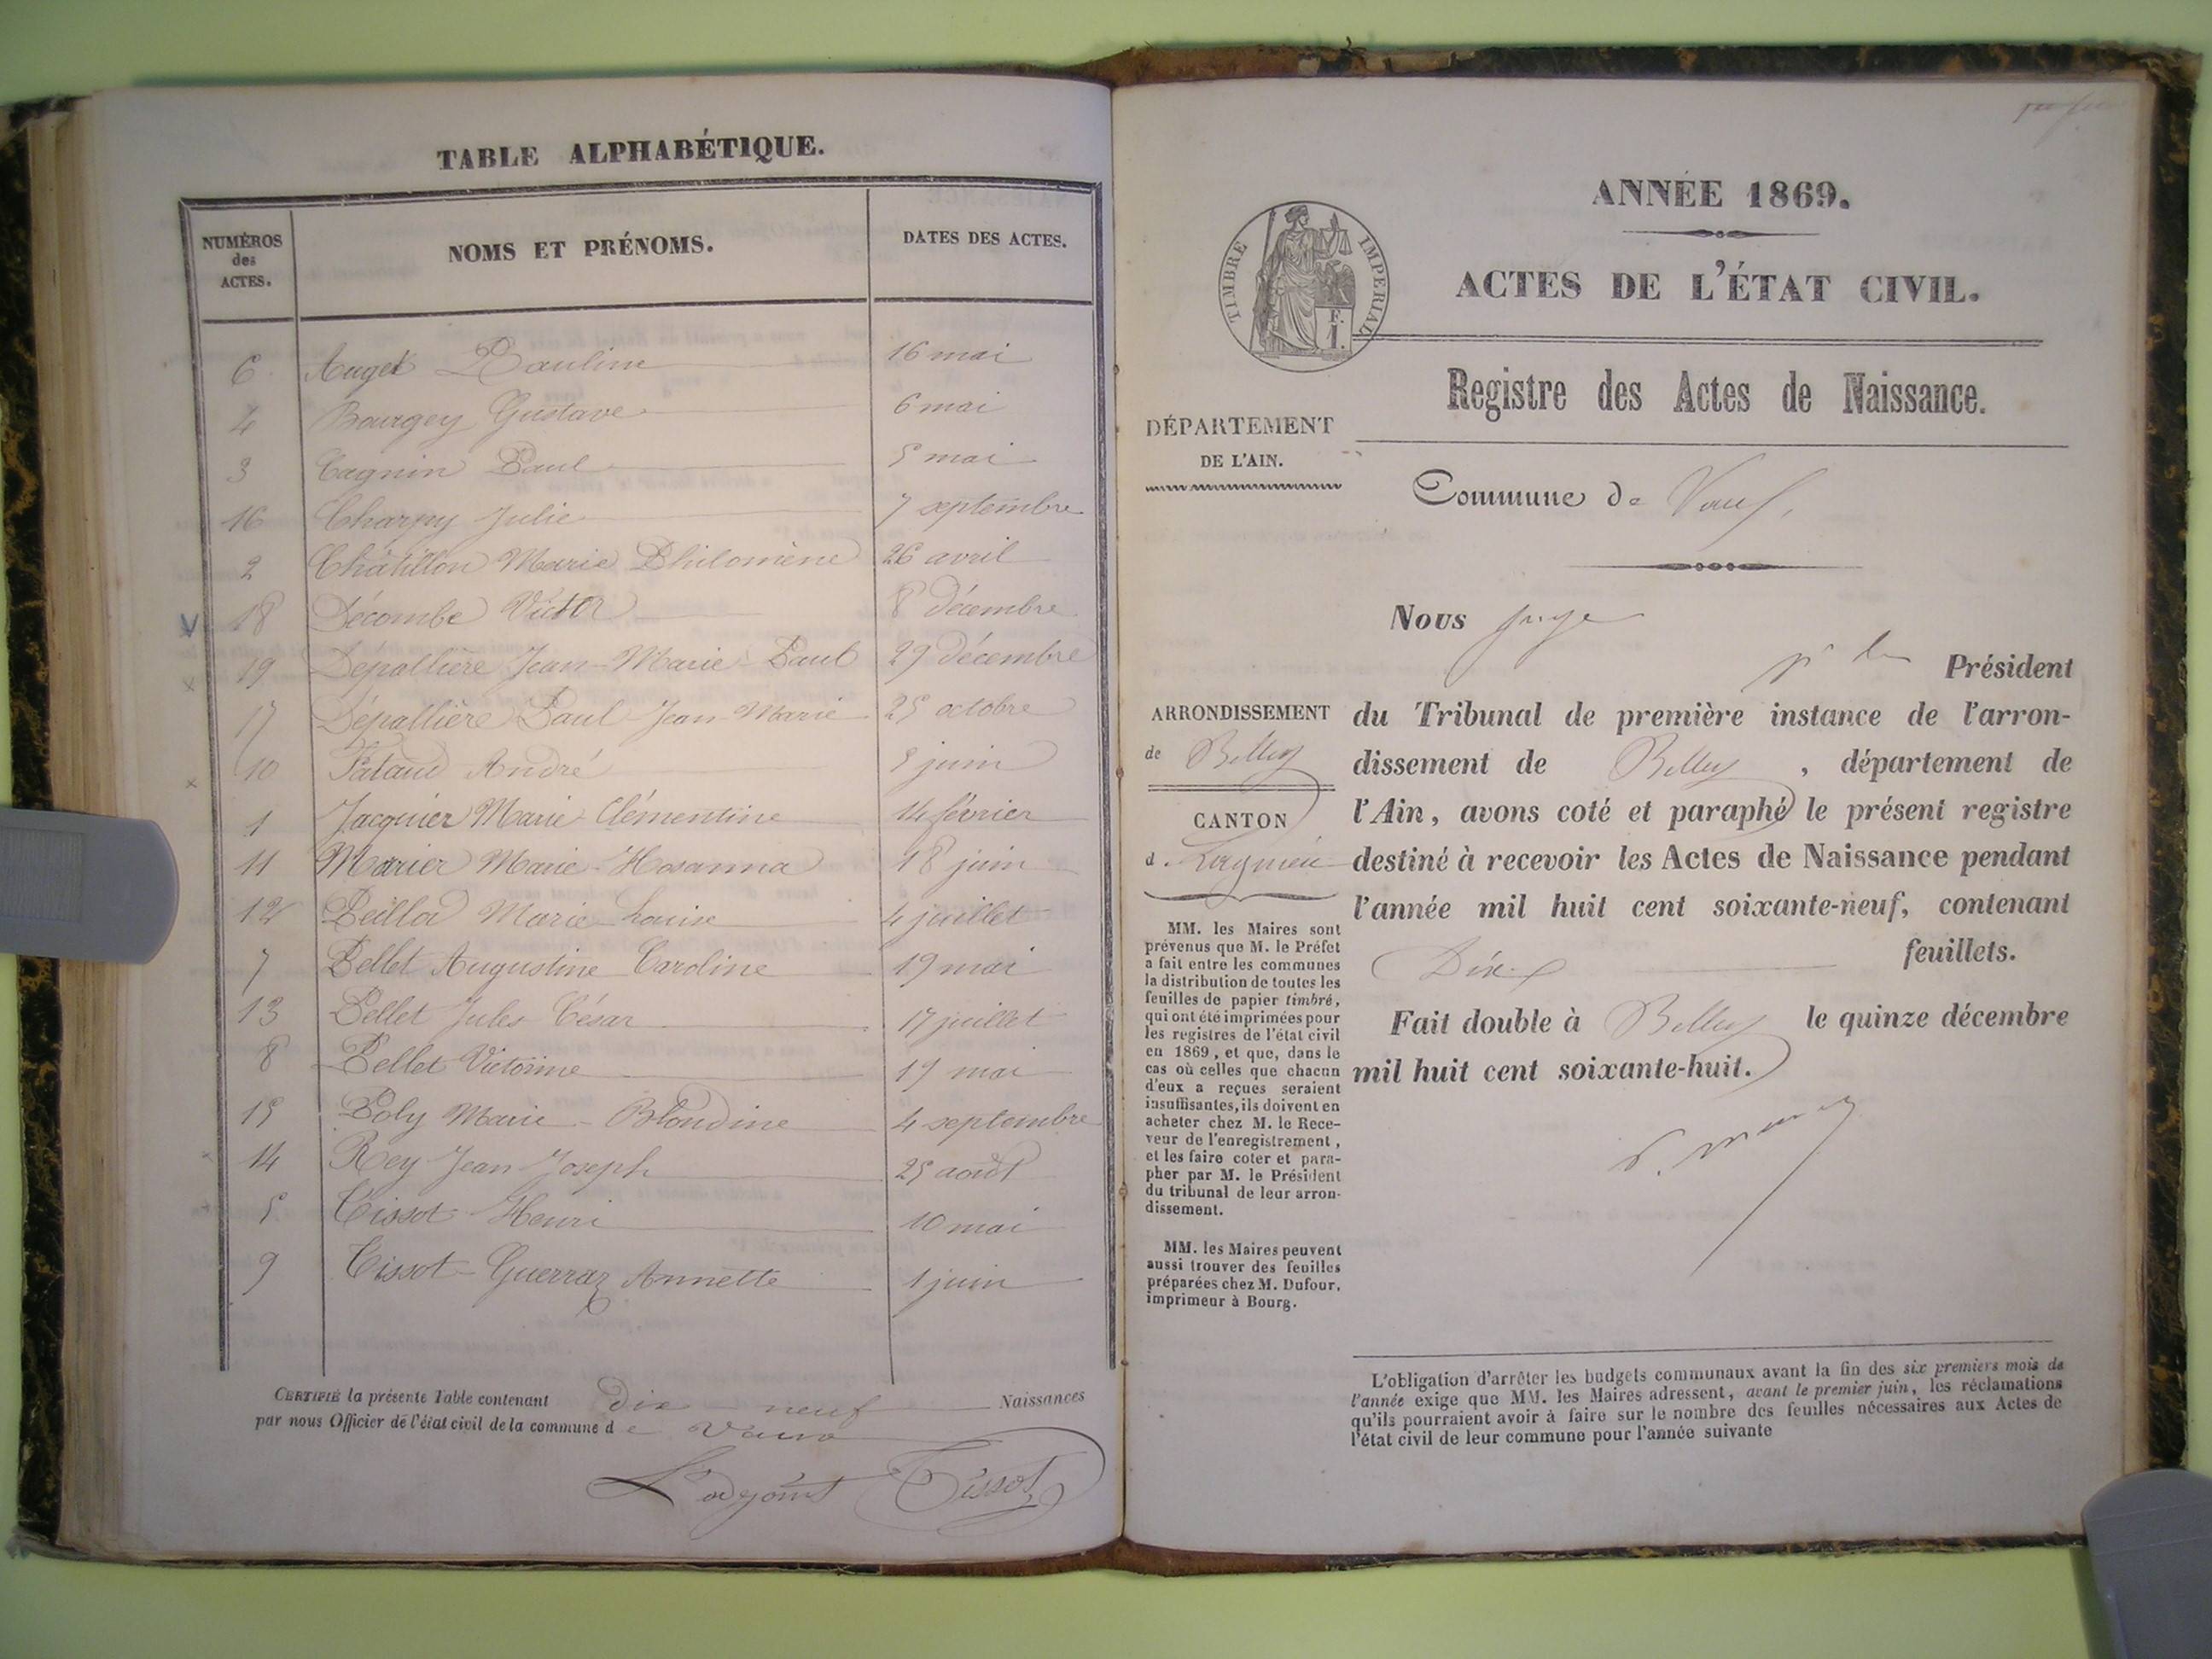 TABLE ALPHABÉTIQUE.
NUMÉROS des ACTES. NOMS ET PRÉNOMS. DATES DES ACTES.
6 Auget Pauline 16 mai
4 Bourgey Gustave 6 mai
3 Cagnin Paul 5 mai
16 Charpy Julie 7 septembre
2 Châtillon Marie Philomène 26 avril
18 Décombe Victor 8 décembre
19 Dépallière Jean-Marie-Paul 29 décembre
17 Dépallière Paul Jean Marie 25 octobre
10 Fataud André 5 juin
1 Jacquier Marie Clémentine 14 février
11 Marier Marie-Hosanna 18 juin
12 Peillod Marie Louise 4 juillet
7 Pellet Augustine Caroline 19 mai
13 Pellet Jules César 17 juillet
8 Pellet Victorine 19 mai
15 Poly Marie-Blondine 4 septembre
14 Rey Jean Joseph 25 août
5 Tissot Henri 10 mai
9 Tissot-Guerraz Annette 1 juin
CERTIFIÉ la présente Table contenant dix neuf Naissances
par nous Officier de l'état civil de la commune de Vaux
L'adjoint Tissot
ANNÉE 1869.
TIMBRE IMPERIAL
F.
1.
ACTES DE L'ÉTAT CIVIL.
Registre des Actes de Naissance.
DÉPARTEMENT
DE L'AIN.
Commune de Vaux,
Nous Juge
pr le Président
ARRONDISSEMENT
de Belley
CANTON
d. Lagnieu
du Tribunal de première instance de l'arron-
dissement de Belley, département de
l'Ain, avons coté et paraphé le présent registre
destiné à recevoir les Actes de Naissance pendant
l'année mil huit cent soixante-neuf, contenant
Dix feuillets.
Fait double à Belley le quinze décembre
mil huit cent soixante-huit.
MM. les Maires sont
prévenus que M. le Préfet
a fait entre les communes
la distribution de toutes les
feuilles de papier timbré,
qui ont été imprimées pour
les registres de l'état civil
en 1869, et que, dans le
cas où celles que chacun
d'eux a reçues seraient
insuffisantes, ils doivent en
acheter chez M. le Rece-
veur de l'enregistrement,
et les faire coter et para-
pher par M. le Président
du tribunal de leur arron-
dissement.
MM. les Maires peuvent
aussi trouver des feuilles
préparées chez M. Dufour,
imprimeur à Bourg.
L'obligation d'arrêter les budgets communaux avant la fin des six premiers mois de
l'année exige que MM. les Maires adressent, avant le premier juin, les réclamations
qu'ils pourraient avoir à faire sur le nombre des feuilles nécessaires aux Actes de
l'état civil de leur commune pour l'année suivante